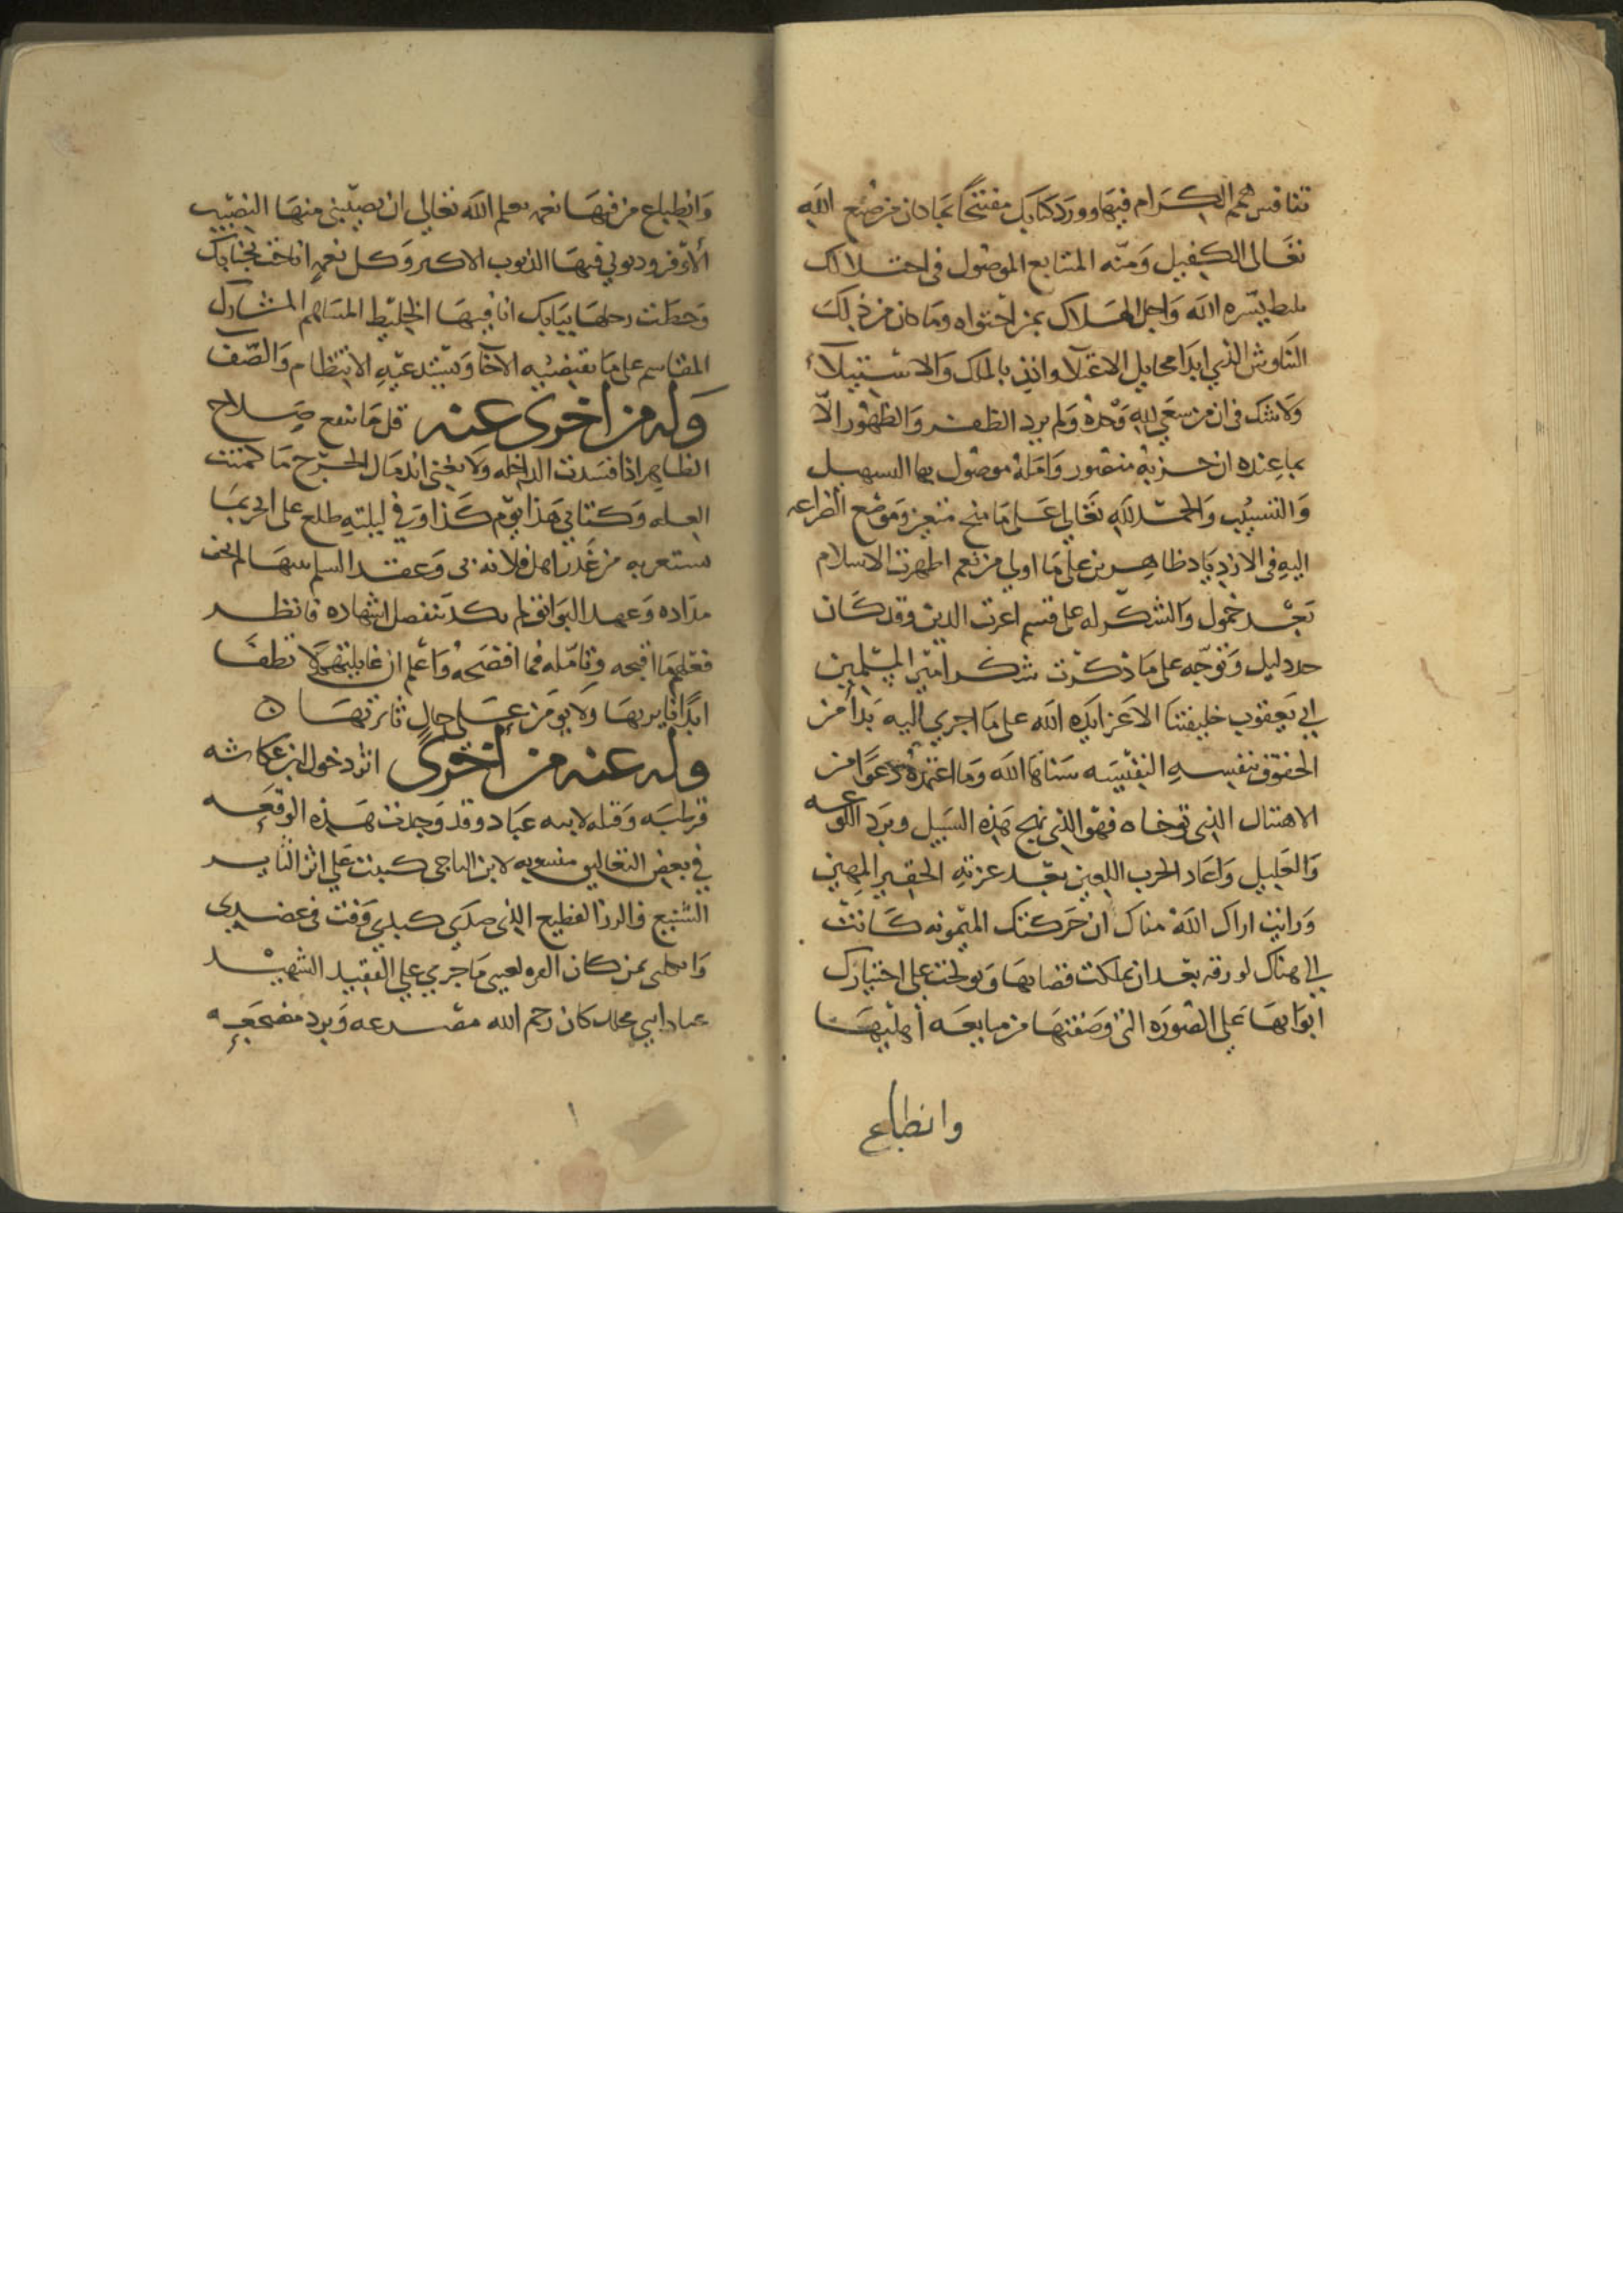 تتنافس همم الكرام فيها وورد كتابك مفتتحا بما كان من صنع الله
تعالى الكفيل ومنه المتتابع الموصول في احتلالك
يسره الله واحل الهلاك بمن احتواه وما كان من ذلك
التناوش الذي ابدا مخايل الاعتلا واذن بالملك والاستيلاء
ولا شك في ان من سعى لله وحده ولم يرد الظفر والظهور الا
بما عنده ان حزبه منصور وامله موصول بها التسهيل
والتسبيب والحمد لله تعالى على ما منح وموضع الضراعه
اليه في الازدياد على ما اولى من نعم اظهرت الاسلام
بعد خمول والشكر له على قسم اعزت الدين وقد كان
دليل وتوجه على ما ذكرت شكر امير المسلمين
ابي يعقوب خليفتنا الاعز ايده الله على ما اجرى اليه بدا من
الحقوق بنفسه النفيسه سناها الله وما اعتمده
الاهتبال الذي توخاه فهو الذي نهج هذه السبيل وبرد اللوعه
والغليل واعاد الحرب اللعين بعد عزته الحقير المهين
ورايت اراك الله مناك ان حركتك الميمونه كانت
الى هناك لورقه بعد ان تملكت قصابها وتولجت على اختيارك
ابوابها على الصوره التي وصفتها من مبايعه اهليها
وانطباع
وانطباع من فيها نعمه يعلم الله تعالى ان نصيبي منها النصيب
الاوفر وذنوبي فيها الذنوب الاكبر وكل نعمه اناخت بجنابك
وحطت رحلها ببابك انا فيها الخليط المساهم المشارك
المقاسم على ما يقتضيه الاخا ويستدعيه الانتظام والصفا
وله من اخرى عنه قل ما ينفع صلاح
الظاهر اذا فسدت الداخله ولا يغني اندمال الجرح ما كمنت
العله وكتابي هذا يوم كذا وفي ليلته طلع على الخبر بما
من غدر اهل فلانه بي وعقد السلم بينها لم يجف
مداده وعهد التوافق لم يكد ينفصل اشهاده فانظر
فعلهم ما اقبحه وتامله فما افضحه واعلم ان لا تطفا
ابدا نايرتها ولا يومن على حال ثائرتها
وله عنه من اخرى اثر دخول ابن عكاشه
قرطبه وقتله لابنه عباد وقد وجدت هذه الوقعه
في بعض التعاليق منسوبه لابن الباجي كتبت على اثر النا
الشنيع والرزا الفظيع الذي صدع كبدي وفت في عضدي
بمن كان القره لعيني ما جرى على الفقيد الشهيد
عباد ابي كان رحم الله مصرعه وبرد مضجعه